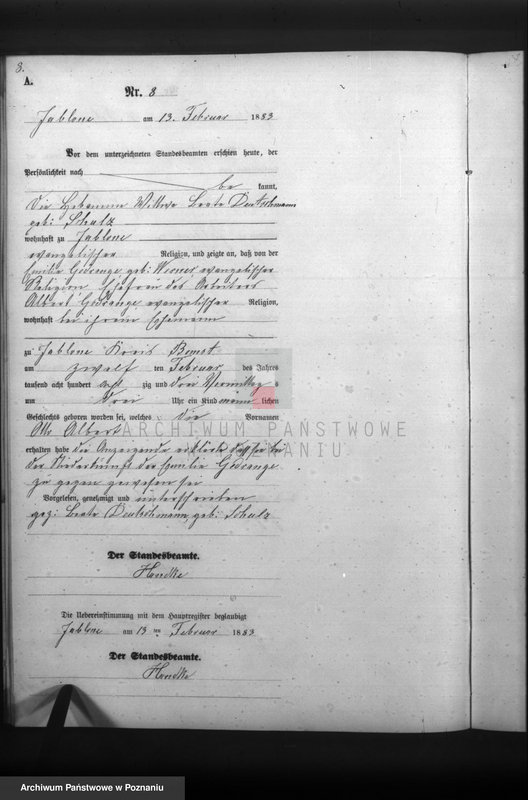 8.
A.
Nr. 8
Jablone am 13. Februar 1883
Vor dem unterzeichneten Standesbeamten erschien heute, der
Persönlichkeit nach
be kannt,
die Hebamme Wittwe Beate Deutschmann
geb: Schulz
wohnhaft zu Jablone
evangelischer Religion, und zeigte an, daß von der
Emilie geb: evangelischer
Religion Ehefrau des Arbeiters
Albert evangelischer Religion,
wohnhaft bei ihrem Ehemann
zu Jablone Kreis Bomst
am zwölf ten Februar des Jahres
tausend acht hundert acht zig und drei Vormittag s
um drei Uhr ein Kind männ lichen
Geschlechts geboren worden sei, welches die Vornamen
Otto Albert
erhalten habe die Anzeigende erklärte daß sie bei
der Niederkunft der Emilie
zu gegen gewesen sei
Vorgelesen, genehmigt und unterschrieben
gez: Beate Deutschmann, geb: Schulz
Der Standesbeamte.
Handke
Die Uebereinstimmung mit dem Hauptregister beglaubigt
Jablone am 13 ten Februar 1883
Der Standesbeamte.
Handke
ARCHIWUM PAŃSTWOWE
W POZNANIU
Archiwum Państwowe w Poznaniu